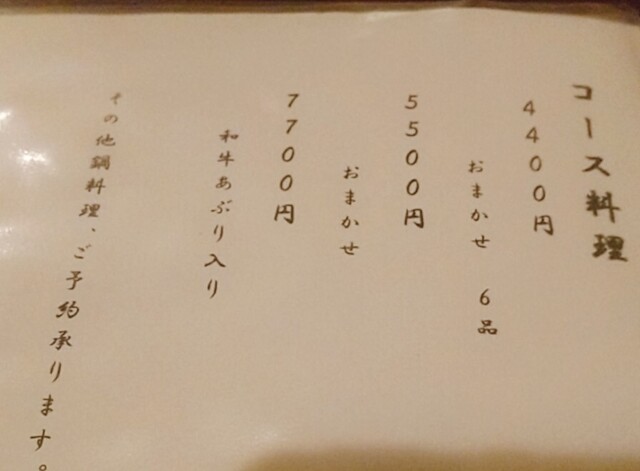 コース料理
4400円
おまかせ 6品
5500円
おまかせ
7700円
和牛あぶり入り
その他鍋料理、ご予約承ります。